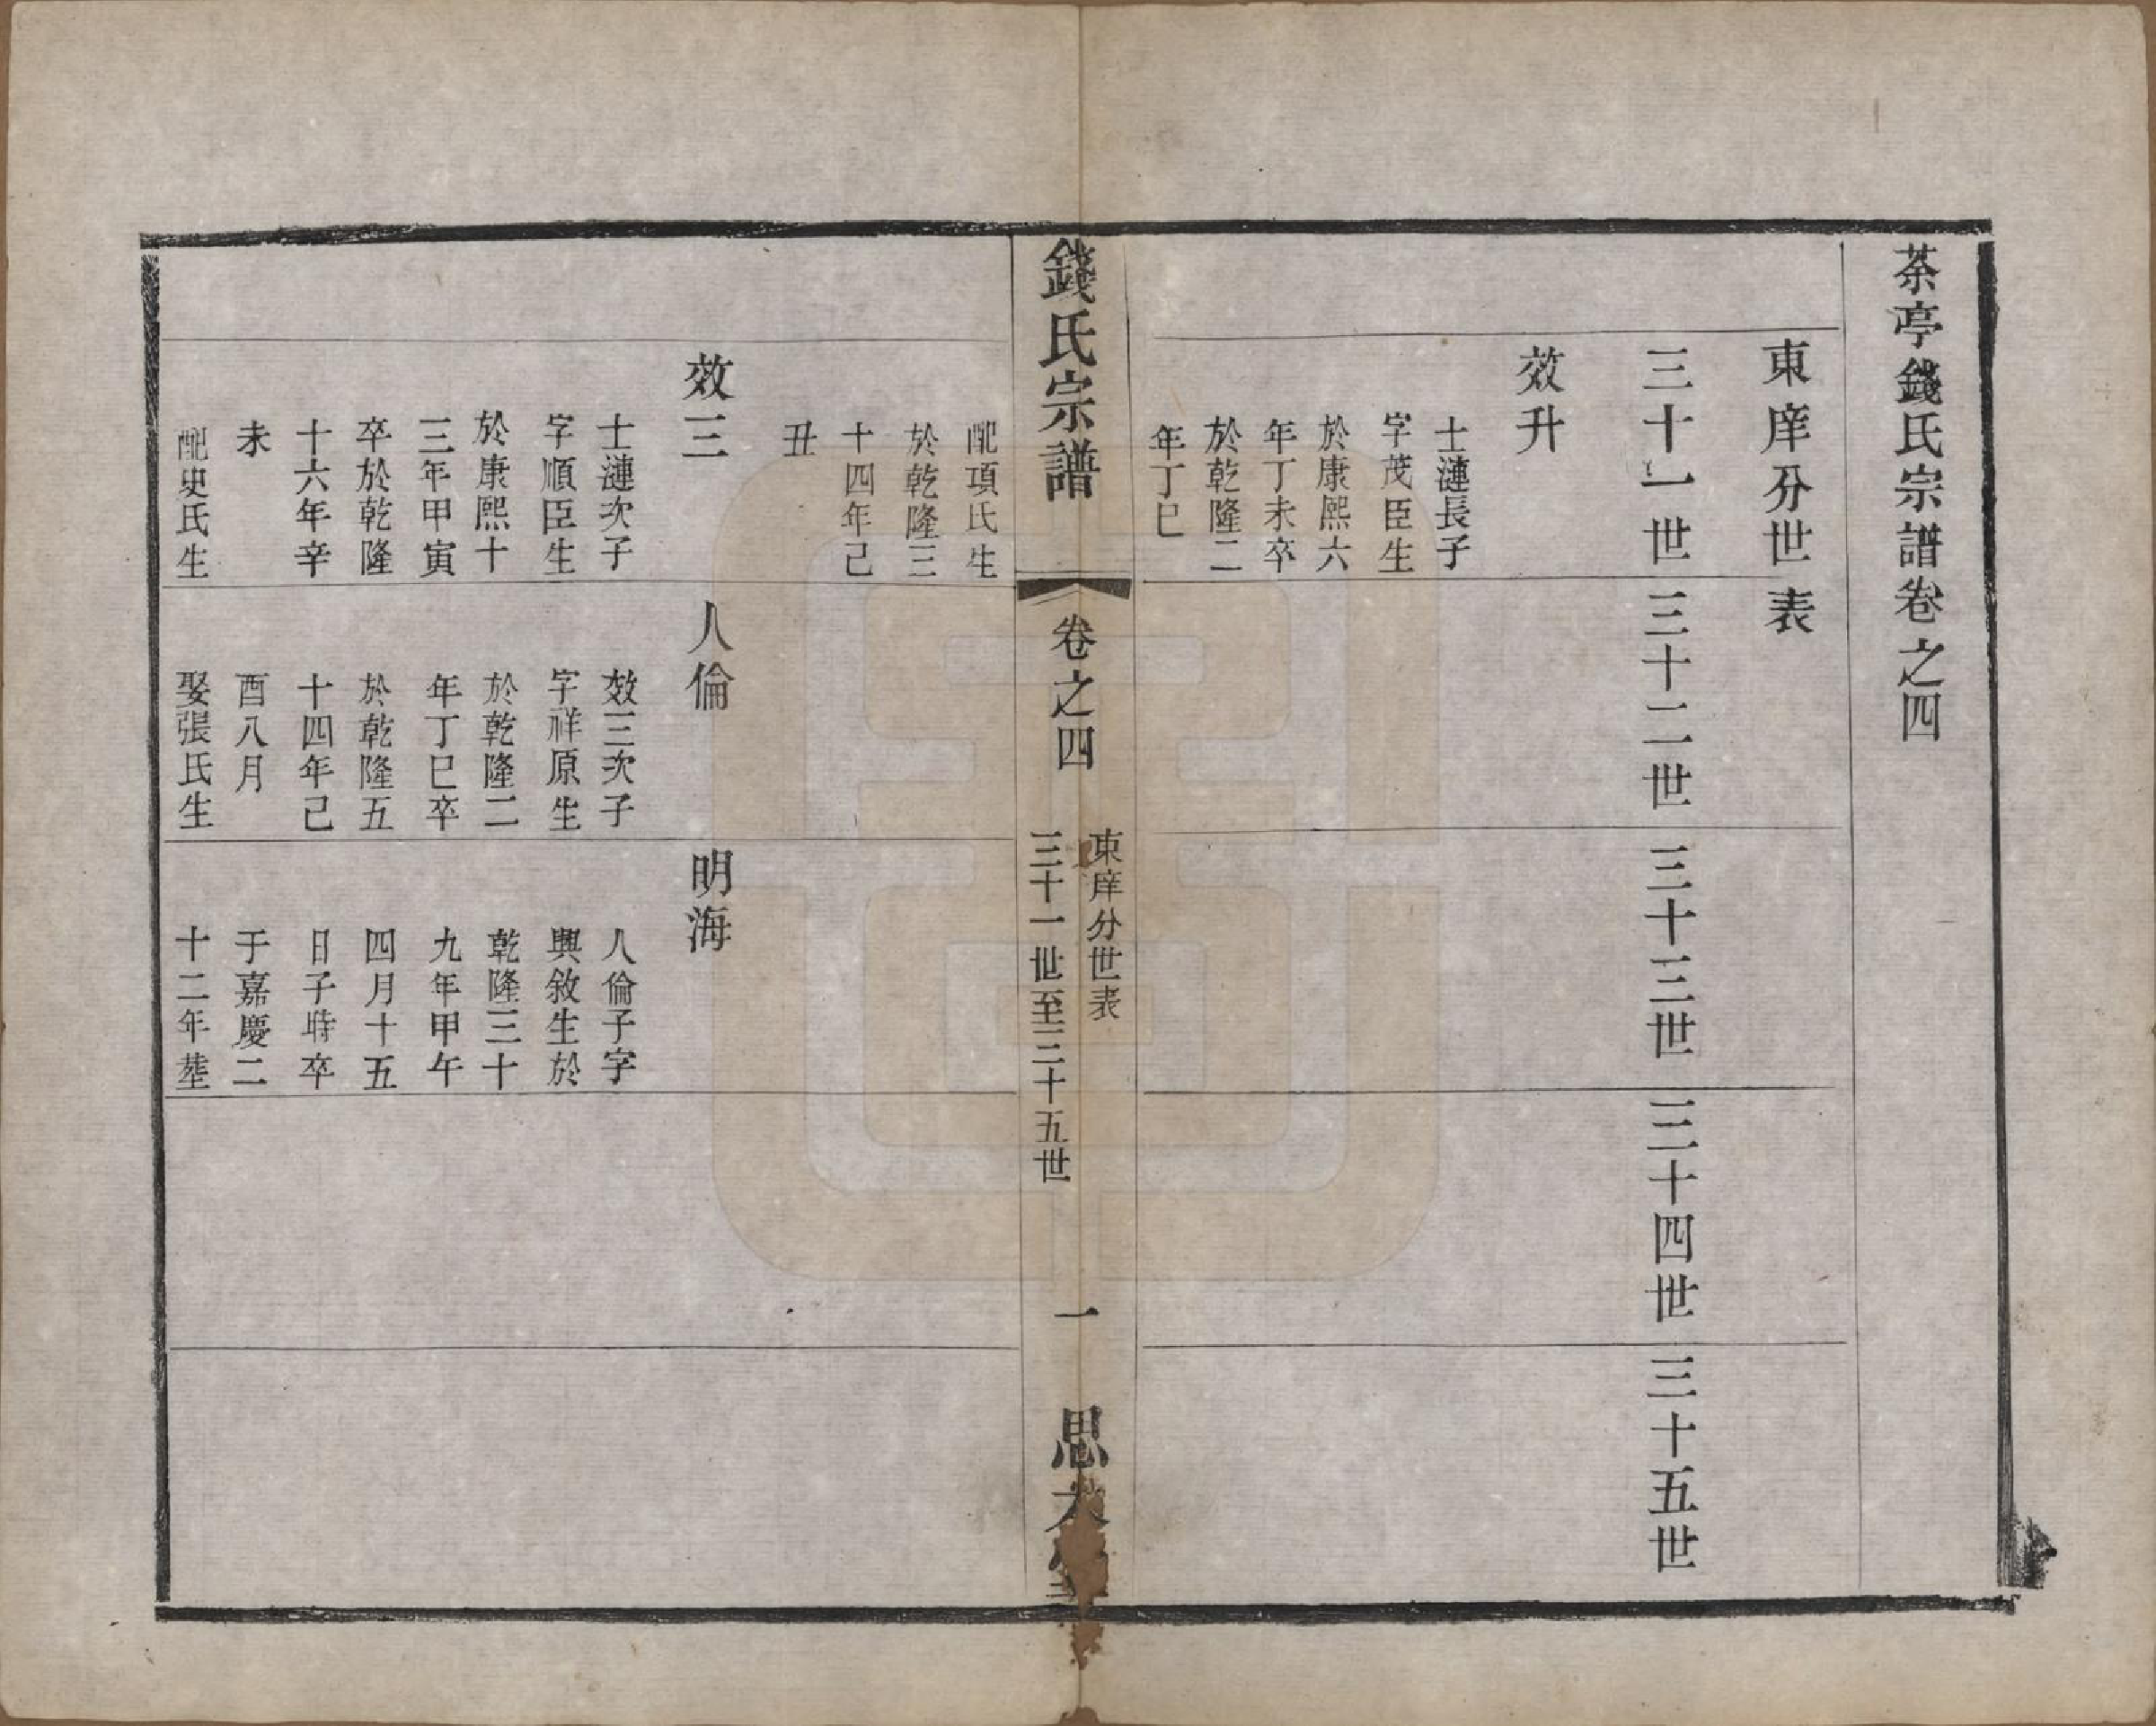 茶亭錢氏宗譜卷之四
東庠分世表
三十一世
三十二世
三十三世
三十四世
三十五世
效升
士漣長子
字茂臣生
於康熙六
年丁未卒
於乾隆二
年丁巳
錢氏宗譜
卷之四
東庠分世表
三十一世至三十五世
一
思
配項氏生
於乾隆三
十四年己
丑
效三
士漣次子
字順臣生
於康熙十
三年甲寅
卒於乾隆
十六年辛
未
配史氏生
人倫
效三次子
字祥原生
於乾隆二
年丁巳卒
於乾隆五
十四年己
酉八月
娶張氏生
明海
人倫子字
興敘生於
乾隆三十
九年甲午
四月十五
日子時卒
于嘉慶二
十二年塟